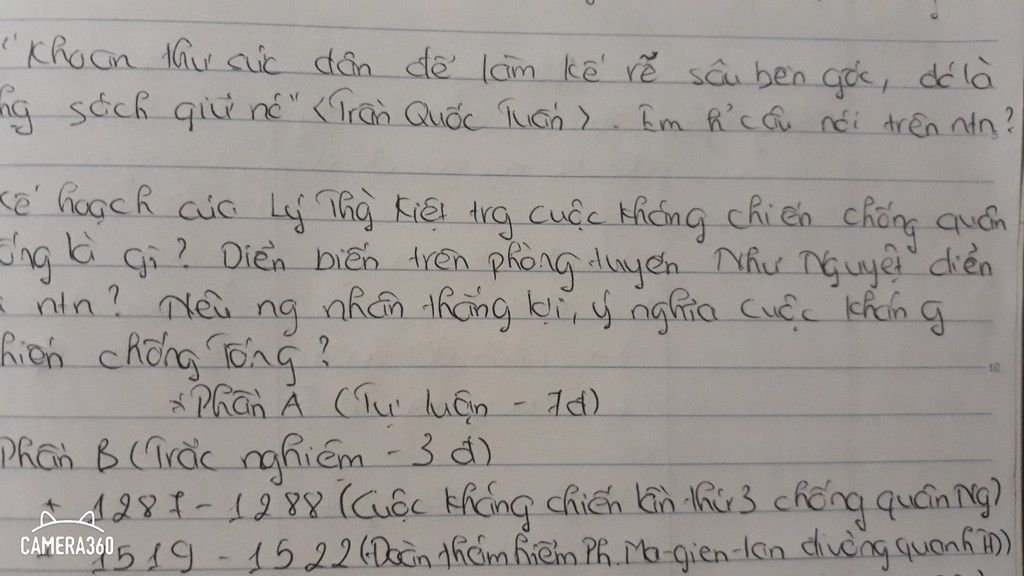 "Khoan thư sức dân để làm kế rễ sâu bền gốc, đó là
ng sách giữ nc" <Trần Quốc Tuấn>. Em h' câu nói trên ntn?
kế hoạch của Lý Thg Kiệt trg cuộc kháng chiến chống quân
ống là gì? Diễn biến trên phòng tuyến Như Nguyệt diễn
ntn? Nêu ng nhân thắng lợi, ý nghĩa cuộc kháng
hiến chống Tống?
* Phần A (Tự luận - 7đ)
Phần B (Trắc nghiệm - 3 đ)
+ 1287 - 1288 (Cuộc kháng chiến lần thứ 3 chống quân Ng)
+ 1519 - 1522 (Đoàn thám hiểm Ph. Ma-gien-lan đi vòng quanh TĐ)
CAMERA360